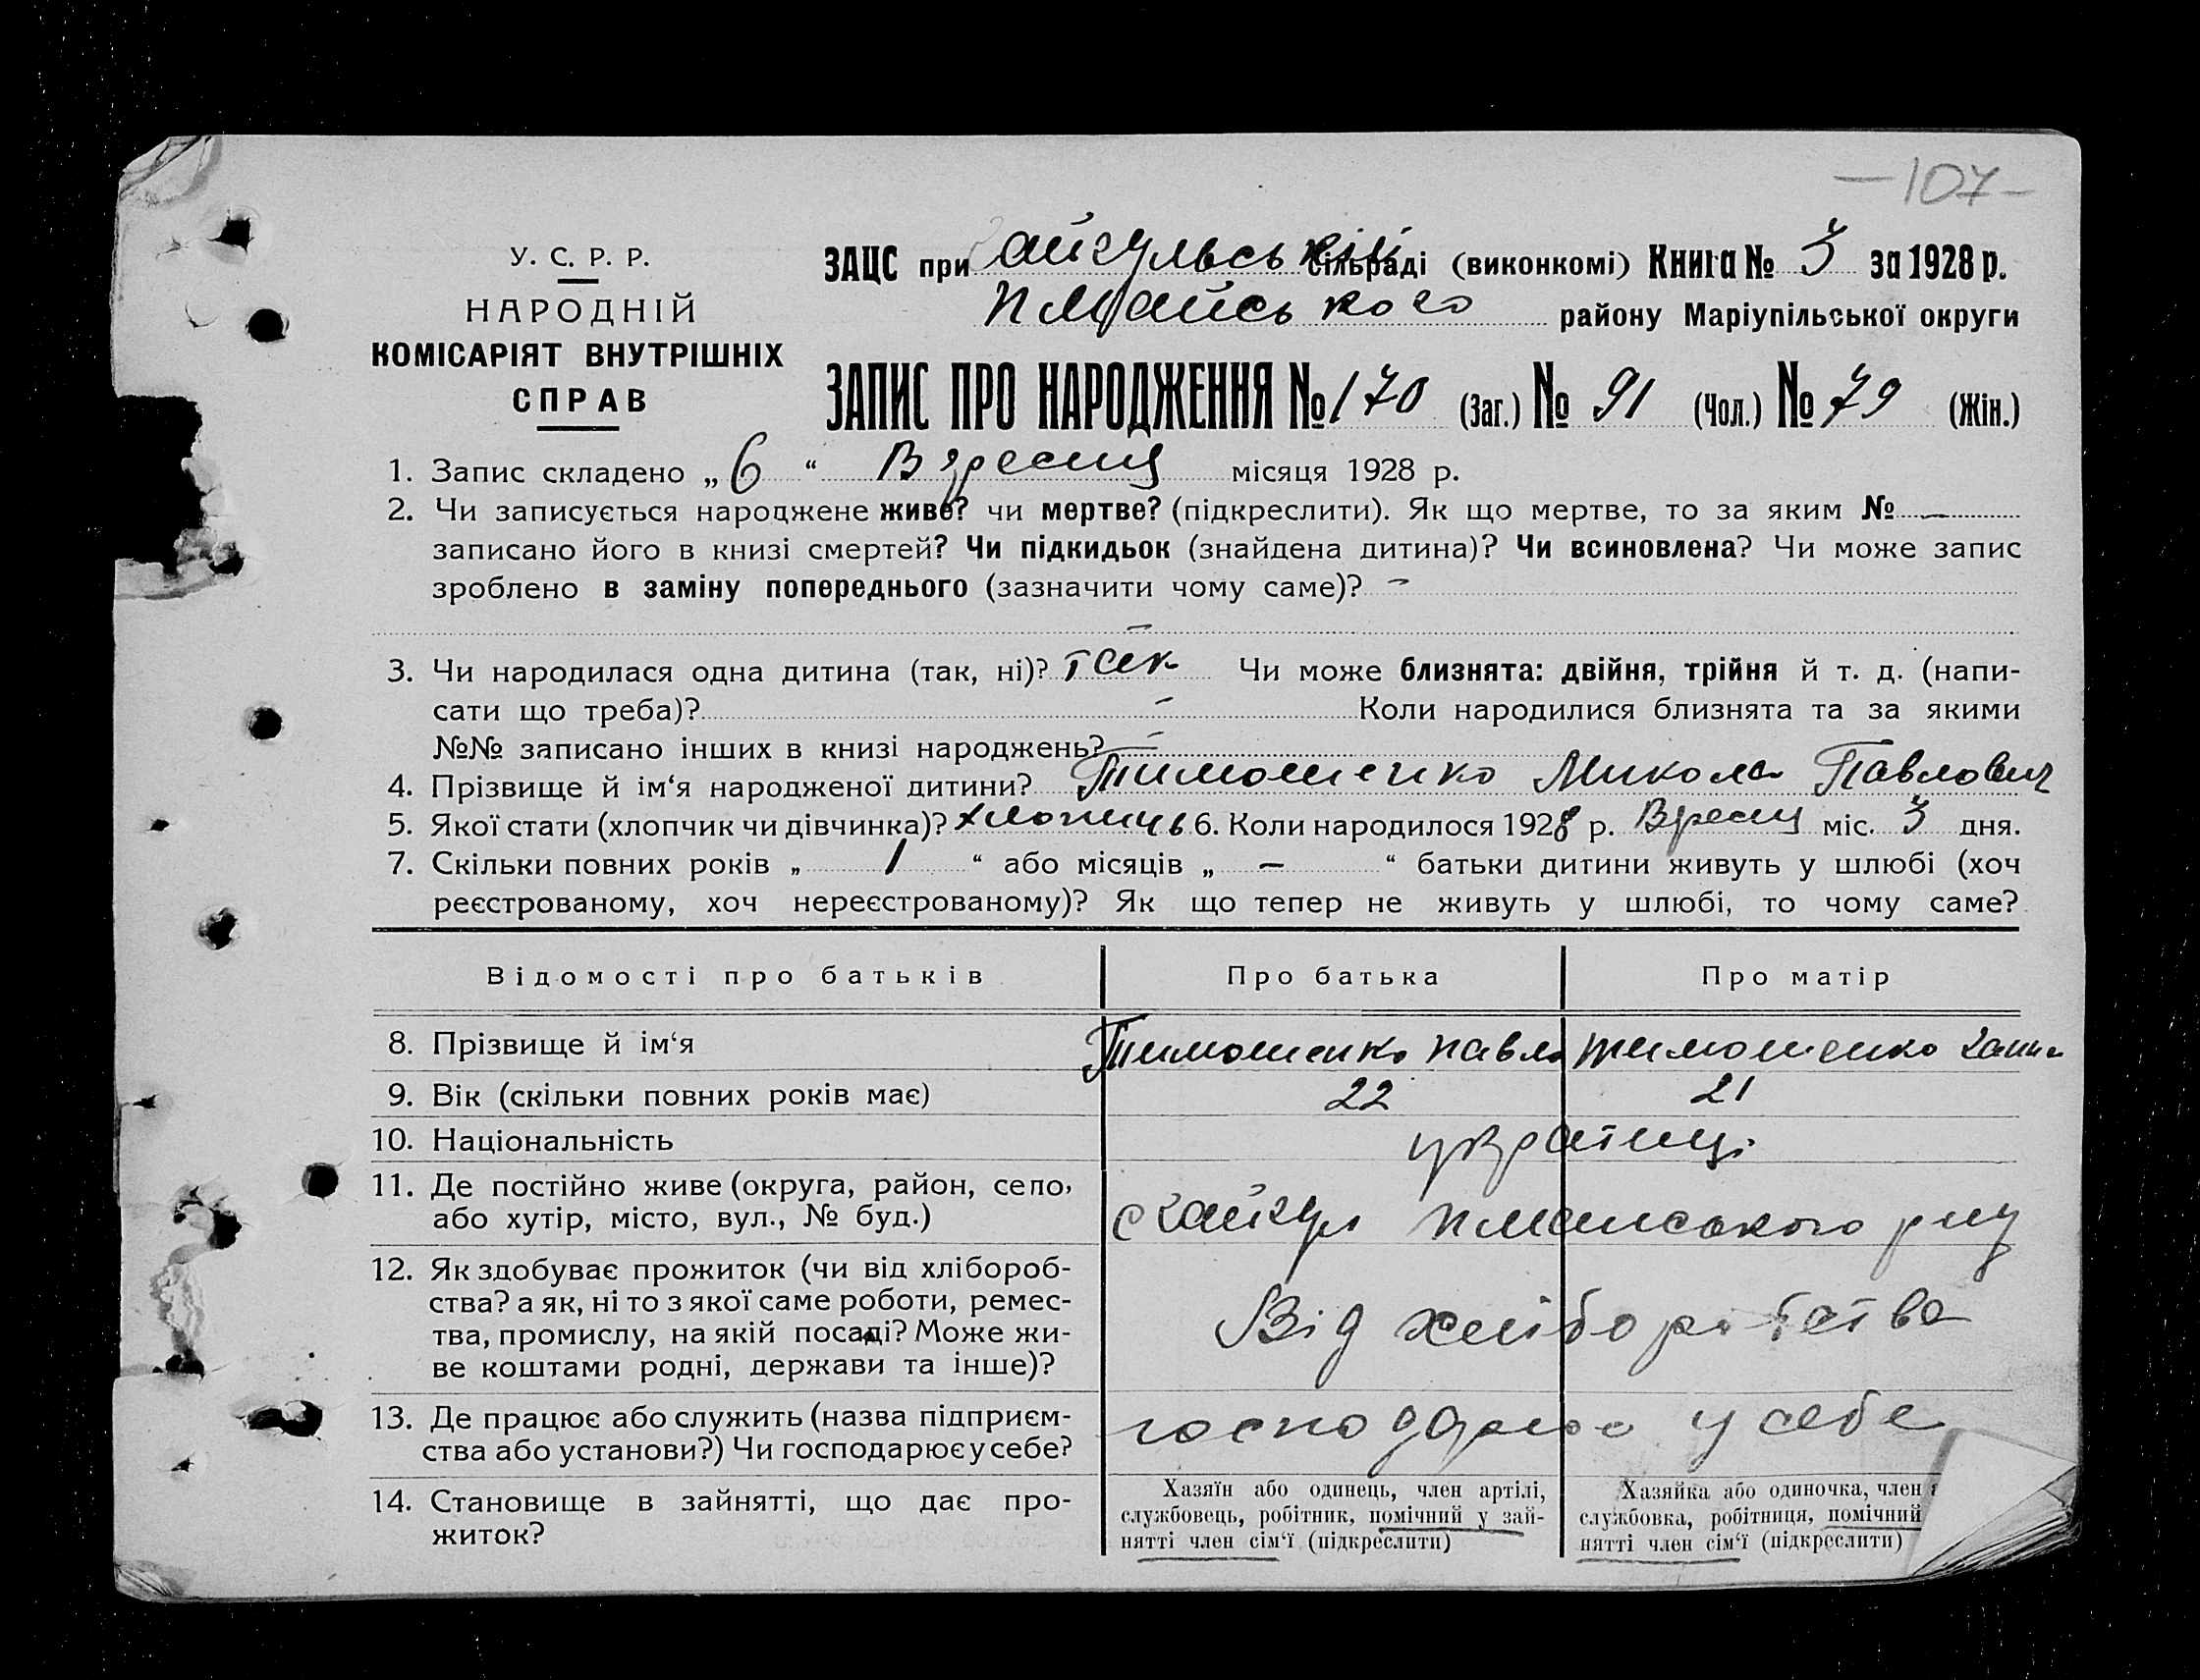 —107—
У. С. Р. Р.
НАРОДНІЙ
КОМІСАРІЯТ ВНУТРІШНІХ
СПРАВ
ЗАЦС при айгульській сільраді (виконкомі) Книга № 3 за 1928 р.
району Маріупільської округи
ЗАПИС ПРО НАРОДЖЕННЯ № 170 (Заг.) № 91 (Чол.) № 79 (Жін.)
1. Запис складено „ 6 “ Вересня місяця 1928 р.
2. Чи записується народжене живе? чи мертве? (підкреслити). Як що мертве, то за яким № —
записано його в книзі смертей? Чи підкидьок (знайдена дитина)? Чи всиновлена? Чи може запис
зроблено в заміну попереднього (зазначити чому саме)? —
—
3. Чи народилася одна дитина (так, ні)? так Чи може близнята: двійня, трійня й т. д. (напи-
сати що треба)? — Коли народилися близнята та за якими
№№ записано інших в книзі народжень? —
4. Прізвище й ім‘я народженої дитини? Тимошенко Микола Павлович
5. Якої стати (хлопчик чи дівчинка)? хлопець 6. Коли народилося 1928 р. Вресня міс. 3 дня.
7. Скільки повних років „ 1 “ або місяців „ — “ батьки дитини живуть у шлюбі (хоч
реєстрованому, хоч нереєстрованому)? Як що тепер не живуть у шлюбі, то чому саме?
Відомості про батьків Про батька Про матір
8. Прізвище й ім‘я Тимошенко Павло Тимошенко
9. Вік (скільки повних років має) 22 21
10. Національність українці
11. Де постійно живе (округа, район, село,
або хутір, місто, вул., № буд.)
12. Як здобуває прожиток (чи від хлібороб-
ства? а як, ні то з якої саме роботи, ремес-
тва, промислу, на якій посаді? Може жи-
ве коштами родні, держави та інше)?
Від хліборобства
13. Де працює або служить (назва підприєм-
ства або установи?) Чи господарює у себе?
господарює у себе
14. Становище в зайнятті, що дає про-
житок?
Хазяїн або одинець, член артілі,
службовець, робітник, помічний у зай-
нятті член сім‘ї (підкреслити)
Хазяйка або одиночка, член
службовка, робітниця, помічний
нятті член сім‘ї (підкреслити)